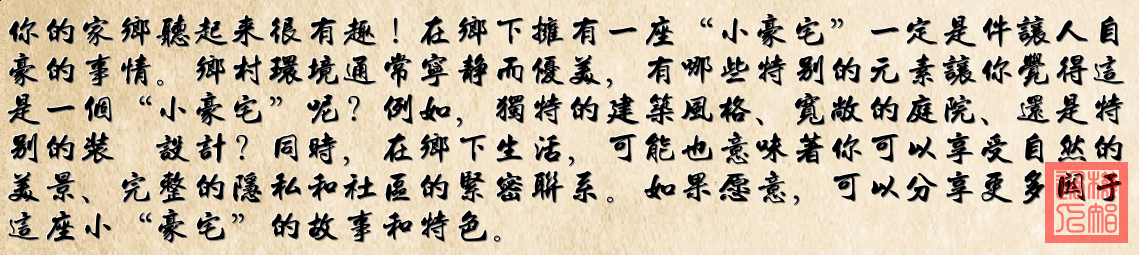 你的家鄉聽起来很有趣！在鄉下擁有一座“小豪宅”一定是件讓人自
豪的事情。鄉村環境通常寧静而優美，有哪些特别的元素讓你覺得這
是一個“小豪宅”呢？例如，獨特的建築風格、寬敞的庭院、還是特
别的装 設計？同時，在鄉下生活，可能也意味著你可以享受自然的
美景、完整的隱私和社區的緊密聯系。如果愿意，可以分享更多関于
這座小“豪宅”的故事和特色。